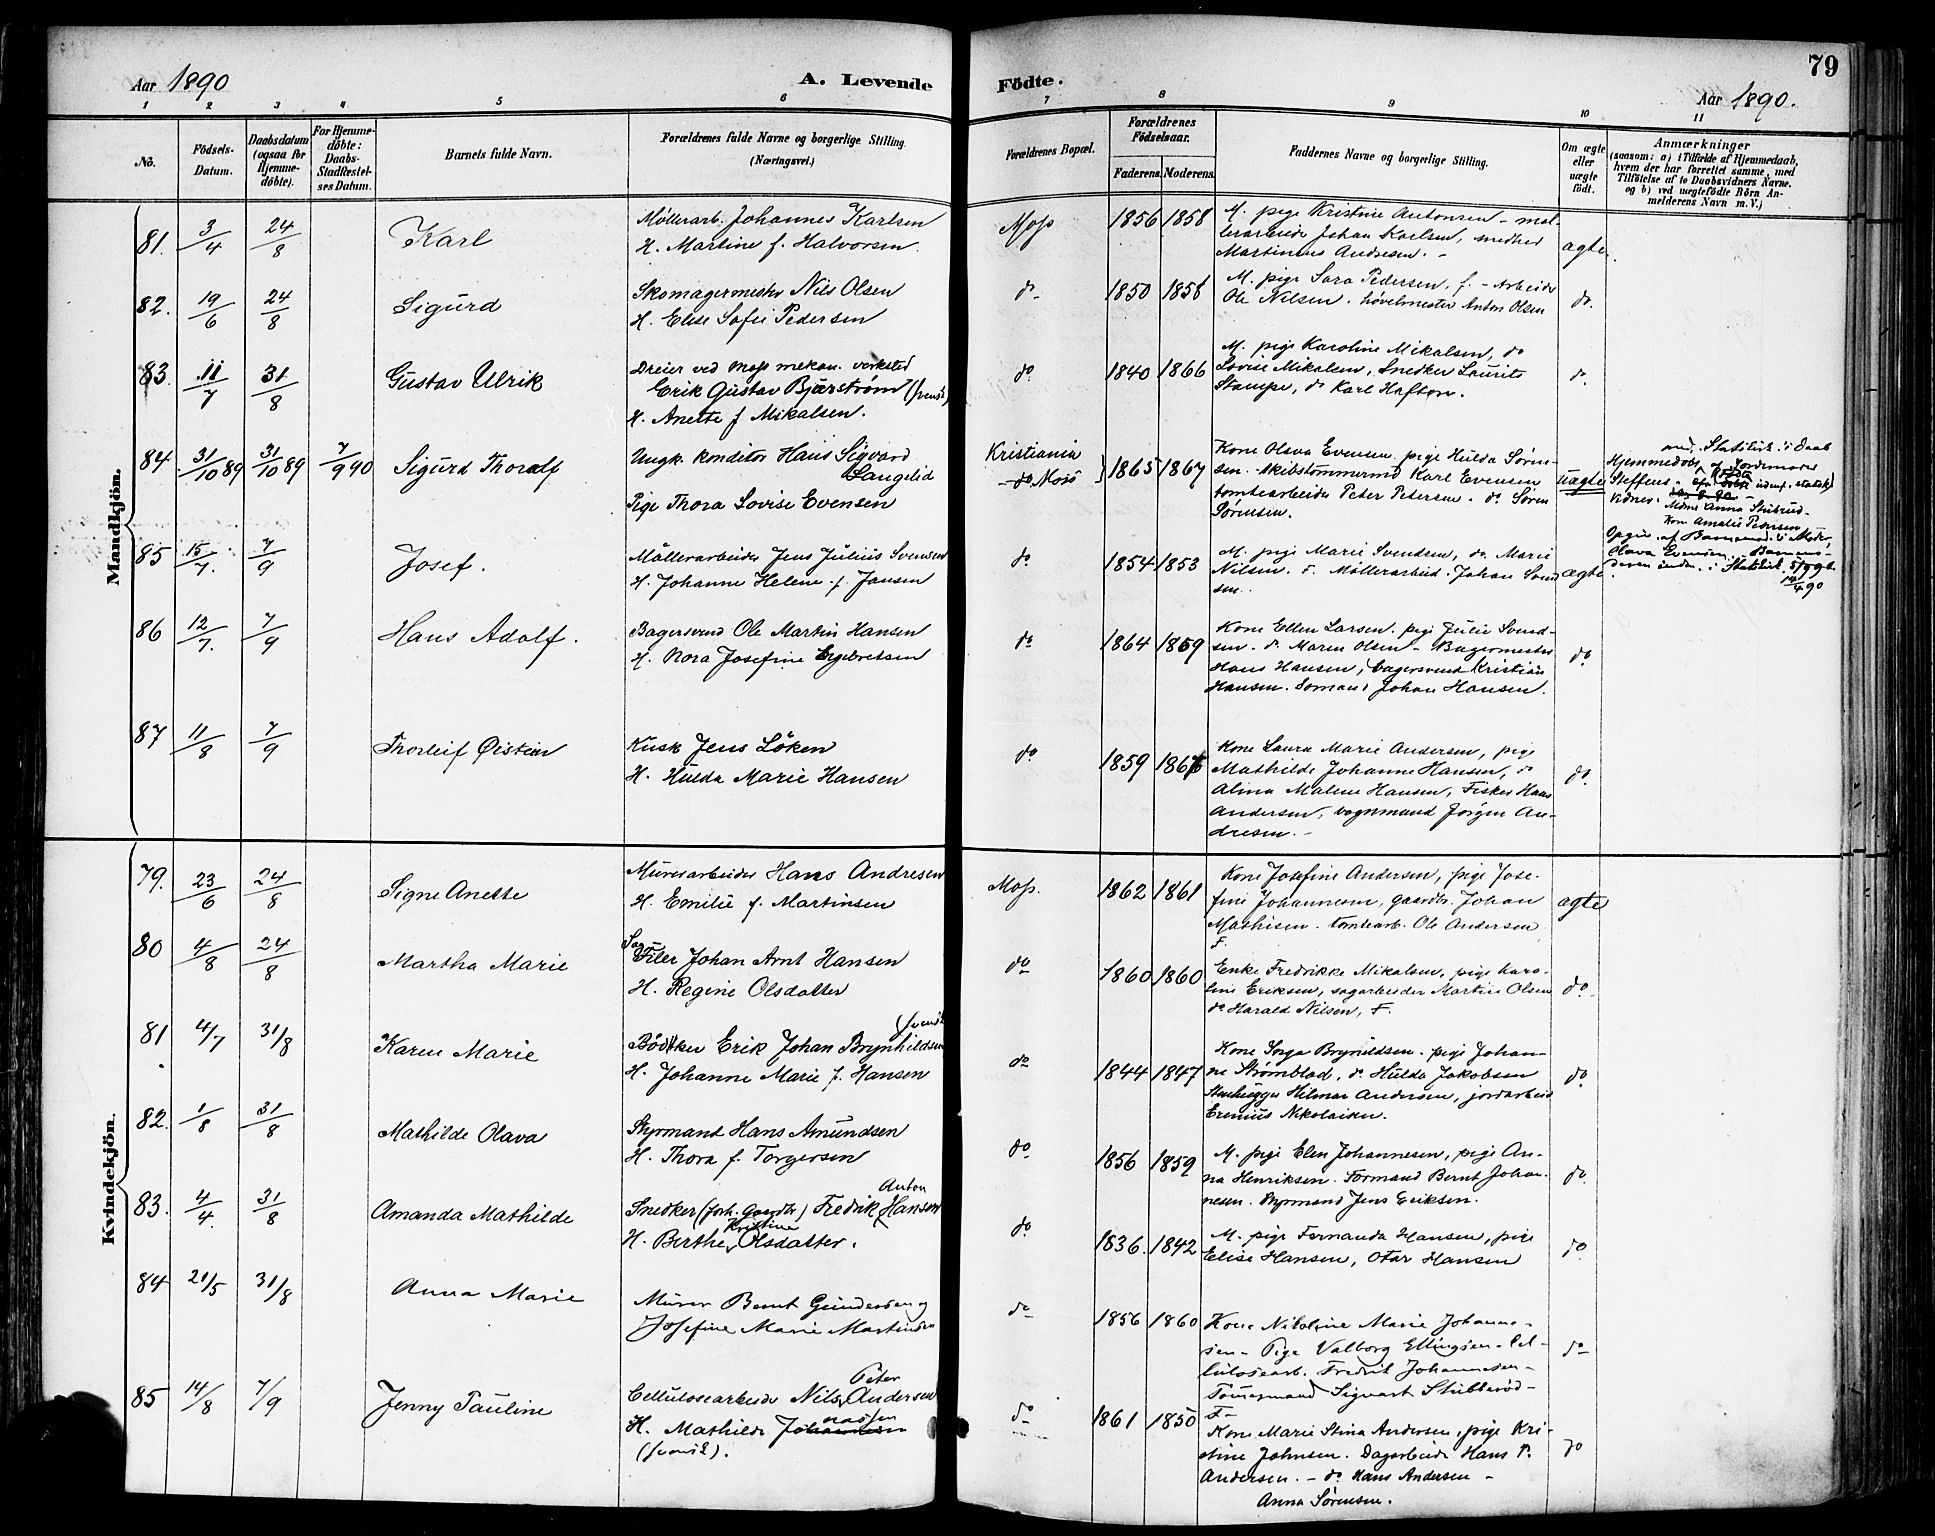 Aar 1890
A. Levende
1 2 3 4 5 6
No.
Födsels-
Datum.
Daabsdatum
(ogsaa for
Hjemme-
döbte).
For Hjemme-
döbte:
Daabs-
Stadfæstel-
ses Datum.
Barnets fulde Navn.
Forældrenes fulde Navne og borgerlige Stilling.
(Næringsvei.)
Mandkjön.
81. 3/4 24/8 Karl
Møllerarb. Johannes Karlsen
H. Martine f. Halvorsen
82. 19/6 24/8 Sigurd
Skomagermester Nils Olsen
H. Elise Sofie Pedersen
83. 11/7 31/8 Gustav Ulrik
Dreier ved Moss mekan. verksted
Erik Gustav Bjerstrøm (svensk)
H. Anette f Mikalsen.
84. 31/10 89 31/10 89 7/9 90 Sigurd Thoralf
Ungk. konditor Hans Sigvard
Langelid
Pige Thora Lovise Evensen
85 15/7 7/9 Josef.
Møllerarbeider Jens Julius Svensen
H. Johanne Helene f. Jansen
86 12/7 7/9 Hans Adolf.
Bagersvend Ole Martin Hansen
H. Nora Josefine Engebretsen
87 11/8 7/9 Thorleif Øistein
Kusk Jens Løken
H. Hulda Marie Hansen
Kvindekjön.
79. 23/6 24/8 Signe Anette
Murerarbeider Hans Andresen
H. Emilie f. Martinsen
80 4/8 24/8 Martha Marie
Filer Johan Arnt Hansen
H. Regine Olsdatter
81 4/7 31/8 Karen Marie
(svensk
Bødtker Erik Johan Brynhildsen
H. Johanne Marie f. Hansen
82. 1/8 31/8 Mathilde Olava
Styrmand Hans Amundsen
H. Thora f. Torgersen
83. 4/4 31/8 Amanda Mathilde
Anton
Snedker (forh. Gaardbr) Fredrik Hansen
Kristine
H. Berthe Olsdatter.
84 21/5 31/8 Anna Marie
Murer Bernt Gundersen og
Josefine Marie Martinsen
85 14/8 7/9 Jenny Pauline
Peter
Cellulosearbeider Nils Andersen
H. Mathilde
(svensk).
79
Födte.
Aar 1890.
7 8 9 10 11
Forældrenes Bopæl.
Forældrenes
Födselsaar.
Faderens. Moderens.
Faddernes Navne og borgerlige Stilling.
Om ægte
eller
uægte
födt.
Anmærkninger
(saasom: a) i Tilfælde af Hjemmedaab,
hvem der har forrettet samme, med
Tilföielse af to Daabsvidners Navne,
og b) ved uægtefödte Börn An-
melderens Navn m. V.)
Moss 1856 1858
M. pige Kristine Antonsen – møl-
lerarbeide Johan Karlsen, smedsvd
Martinius Andresen. –
ægte
do 1850 1858
M. pige Sara Pedersen, f. – Arbeider
Ole Nilsen. høvelmester Anton Olsen
do.
do 1840 1866
M. pige Karoline Mikalsen, do
Lovise Mikalsen, Snedker Laurits
Stampe, do Karl Haftorn.
do.
Kristiania
do Moss
1865 1867
Kone Olava Evensen. pige Hulda Søren-
sen. Skibstømmermd Karl Evensen
tomtearbeider Peter Petersen. do Søren
Sørensen.
uægte
Hjemmedøbt af Jordemoder
Steffens.
Vidner.
Mdme Anna Stubrud
Kone Amalie Pedersen
Olava Evensen
19/4 90
do 1854 1853
M. pige Marie Svendsen, do Marie
Nilsen. F. Møllerarbeid. Johan Svend
sen.
ægte
do 1864 1869
Kone Ellen Larsen. pige Julie Svend-
sen. do Maren Olsen – Bagermester
Hans Hansen, bagersvend Kristian
Hansen. Sømand Johan Hansen.
do
do 1859
Kone Laura Marie Andersen, pige
Mathilde Johanne Hansen, do
Alina Malene Hansen, Fisker Hans
Andersen, vognmand Jørgen An-
dresen. –
do.
Moss. 1862 1861
Kone Josefine Andersen, pige Jose-
fine Johannesen, gaardbr. Johan
Mathisen. tomtearb. Ole Andersen
F.
ægte
do 1860 1860
Enke Fredrikke Mikalsen, pige Karo-
line Eriksen, sagarbeider Martin Olsen
do Harald Nilsen, F.
do
do 1844 1847
Kone Inga Brynildsen. pige Johan-
ne Strømblad, do Hulda Jakobsen
Stenhugger Hilmar Andersen, jordarbeid
Erenius Nikolaisen.
do
do 1856 1859
M. pige Elen Johannesen, pige An-
na Henriksen. Formand Bernt Johan-
nesen. Styrmand Jens Eriksen.
do.
do 1836. 1842
M. pige Fernanda Hansen, pige
Elise Hansen, Otar Hansen
do
do 1856 1860
Kone Nikoline Marie Johanne-
sen – Pige Valborg Ellingsen – Cel-
lulosearb. Fredrik Johannesen –
Tømmermand Sigvart Stubberød –
F –
do
do 1861 1850
Kone Marie Stina Andersen, pige Kri-
stine Johnsen. Dagarbeider Hans P.
Andersen. – do Hans Andersen –
Anna Sørensen.
do